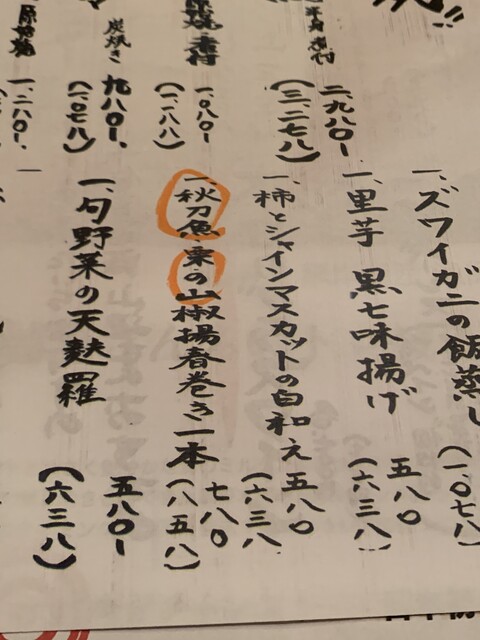 二、九八〇-
(三、二七八)
一、〇八〇-
(一、一八八)
炭焼き
九八〇-
(一、〇七八)
一、二八〇-
一、ズワイガニの飯蒸し
(一、〇七八)
一、里芋 黒七味揚げ
五八〇
(六三八)
一、柿とシャインマスカットの白和え
五八〇
(六三八)
一、秋刀魚・栗の山椒揚春巻き一本
七八〇
(八五八)
一、旬野菜の天麩羅
五八〇-
(六三八)